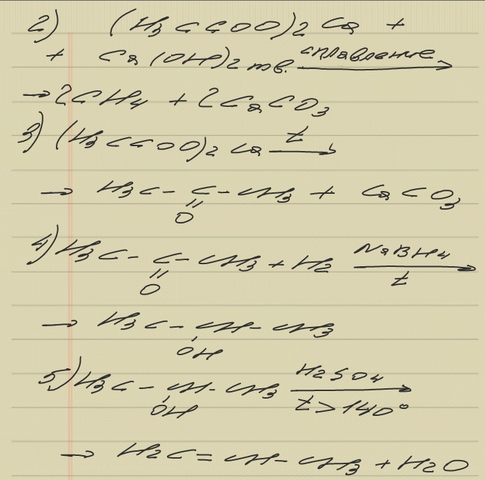 2) (H3CCOO)2Ca +
+ Ca(OH)2 тв. сплавление →
→ 2CH4 + 2CaCO3
3) (H3CCOO)2Ca t →
→ H3C-C-CH3 + CaCO3
=
O
4) H3C-C-CH3 + H2 NaBH4 →
= t
O
→ H3C-CH-CH3
OH
5) H3C-CH-CH3 H2SO4 →
OH t>140°
→ H2C=CH-CH3 + H2O